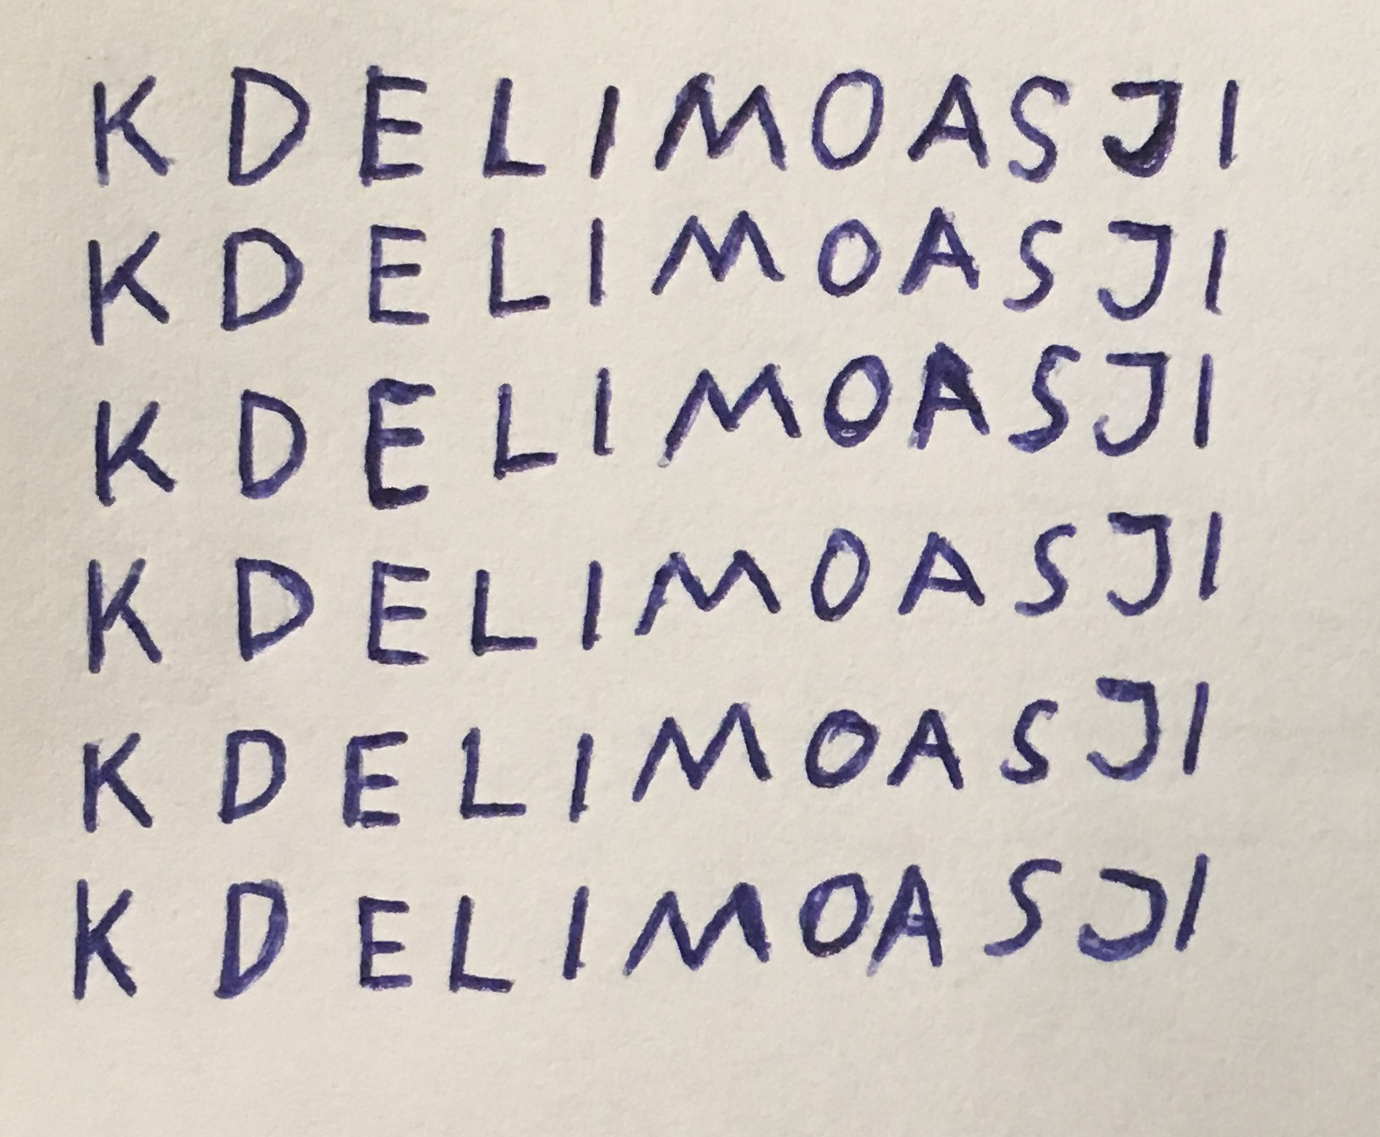 K D E L I M O A S J I
K D E L I M O A S J I
K D E L I M O A S J I
K D E L I M O A S J I
K D E L I M O A S J I
K D E L I M O A S J I